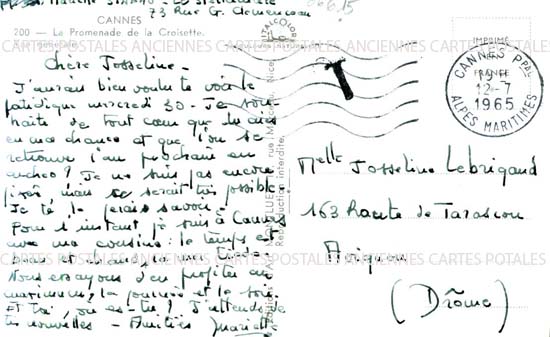 73 Rue G. Clemenceau
CANNES
200 - La Promenade de la Croisette.
CARTES POSTALES ANCIENNES CARTES POSTALES ANCIENNES CARTES POTALES
Chère Josseline -
J'aurais bien voulu te voir le
fatidique mercredi 30 - Je sou-
haite de tout cœur que tu aies
eu ma chance et que l'on se
retrouve l'an prochain en
? Je ne suis pas encore
fixée, mais ce serait très possible
Je te le ferais savoir -
Pour l'instant je suis à Cannes
avec ma cousine : le temps est
beau et
Nous essayons d'en profiter au
maximum, la journée et le soir
Et toi, où es-tu ? J'attends de
tes nouvelles - Amitiés
Reproduction interdite.
T
CANNES Ppal
12-7
1965
ALPES MARITIMES
Melle Josseline Lebrigand
163 Route de Tarascon
Avignon
CARTES POSTALES ANCIENNES CARTES POSTALES ANCIENNES CARTES POTALES
(Drôme)